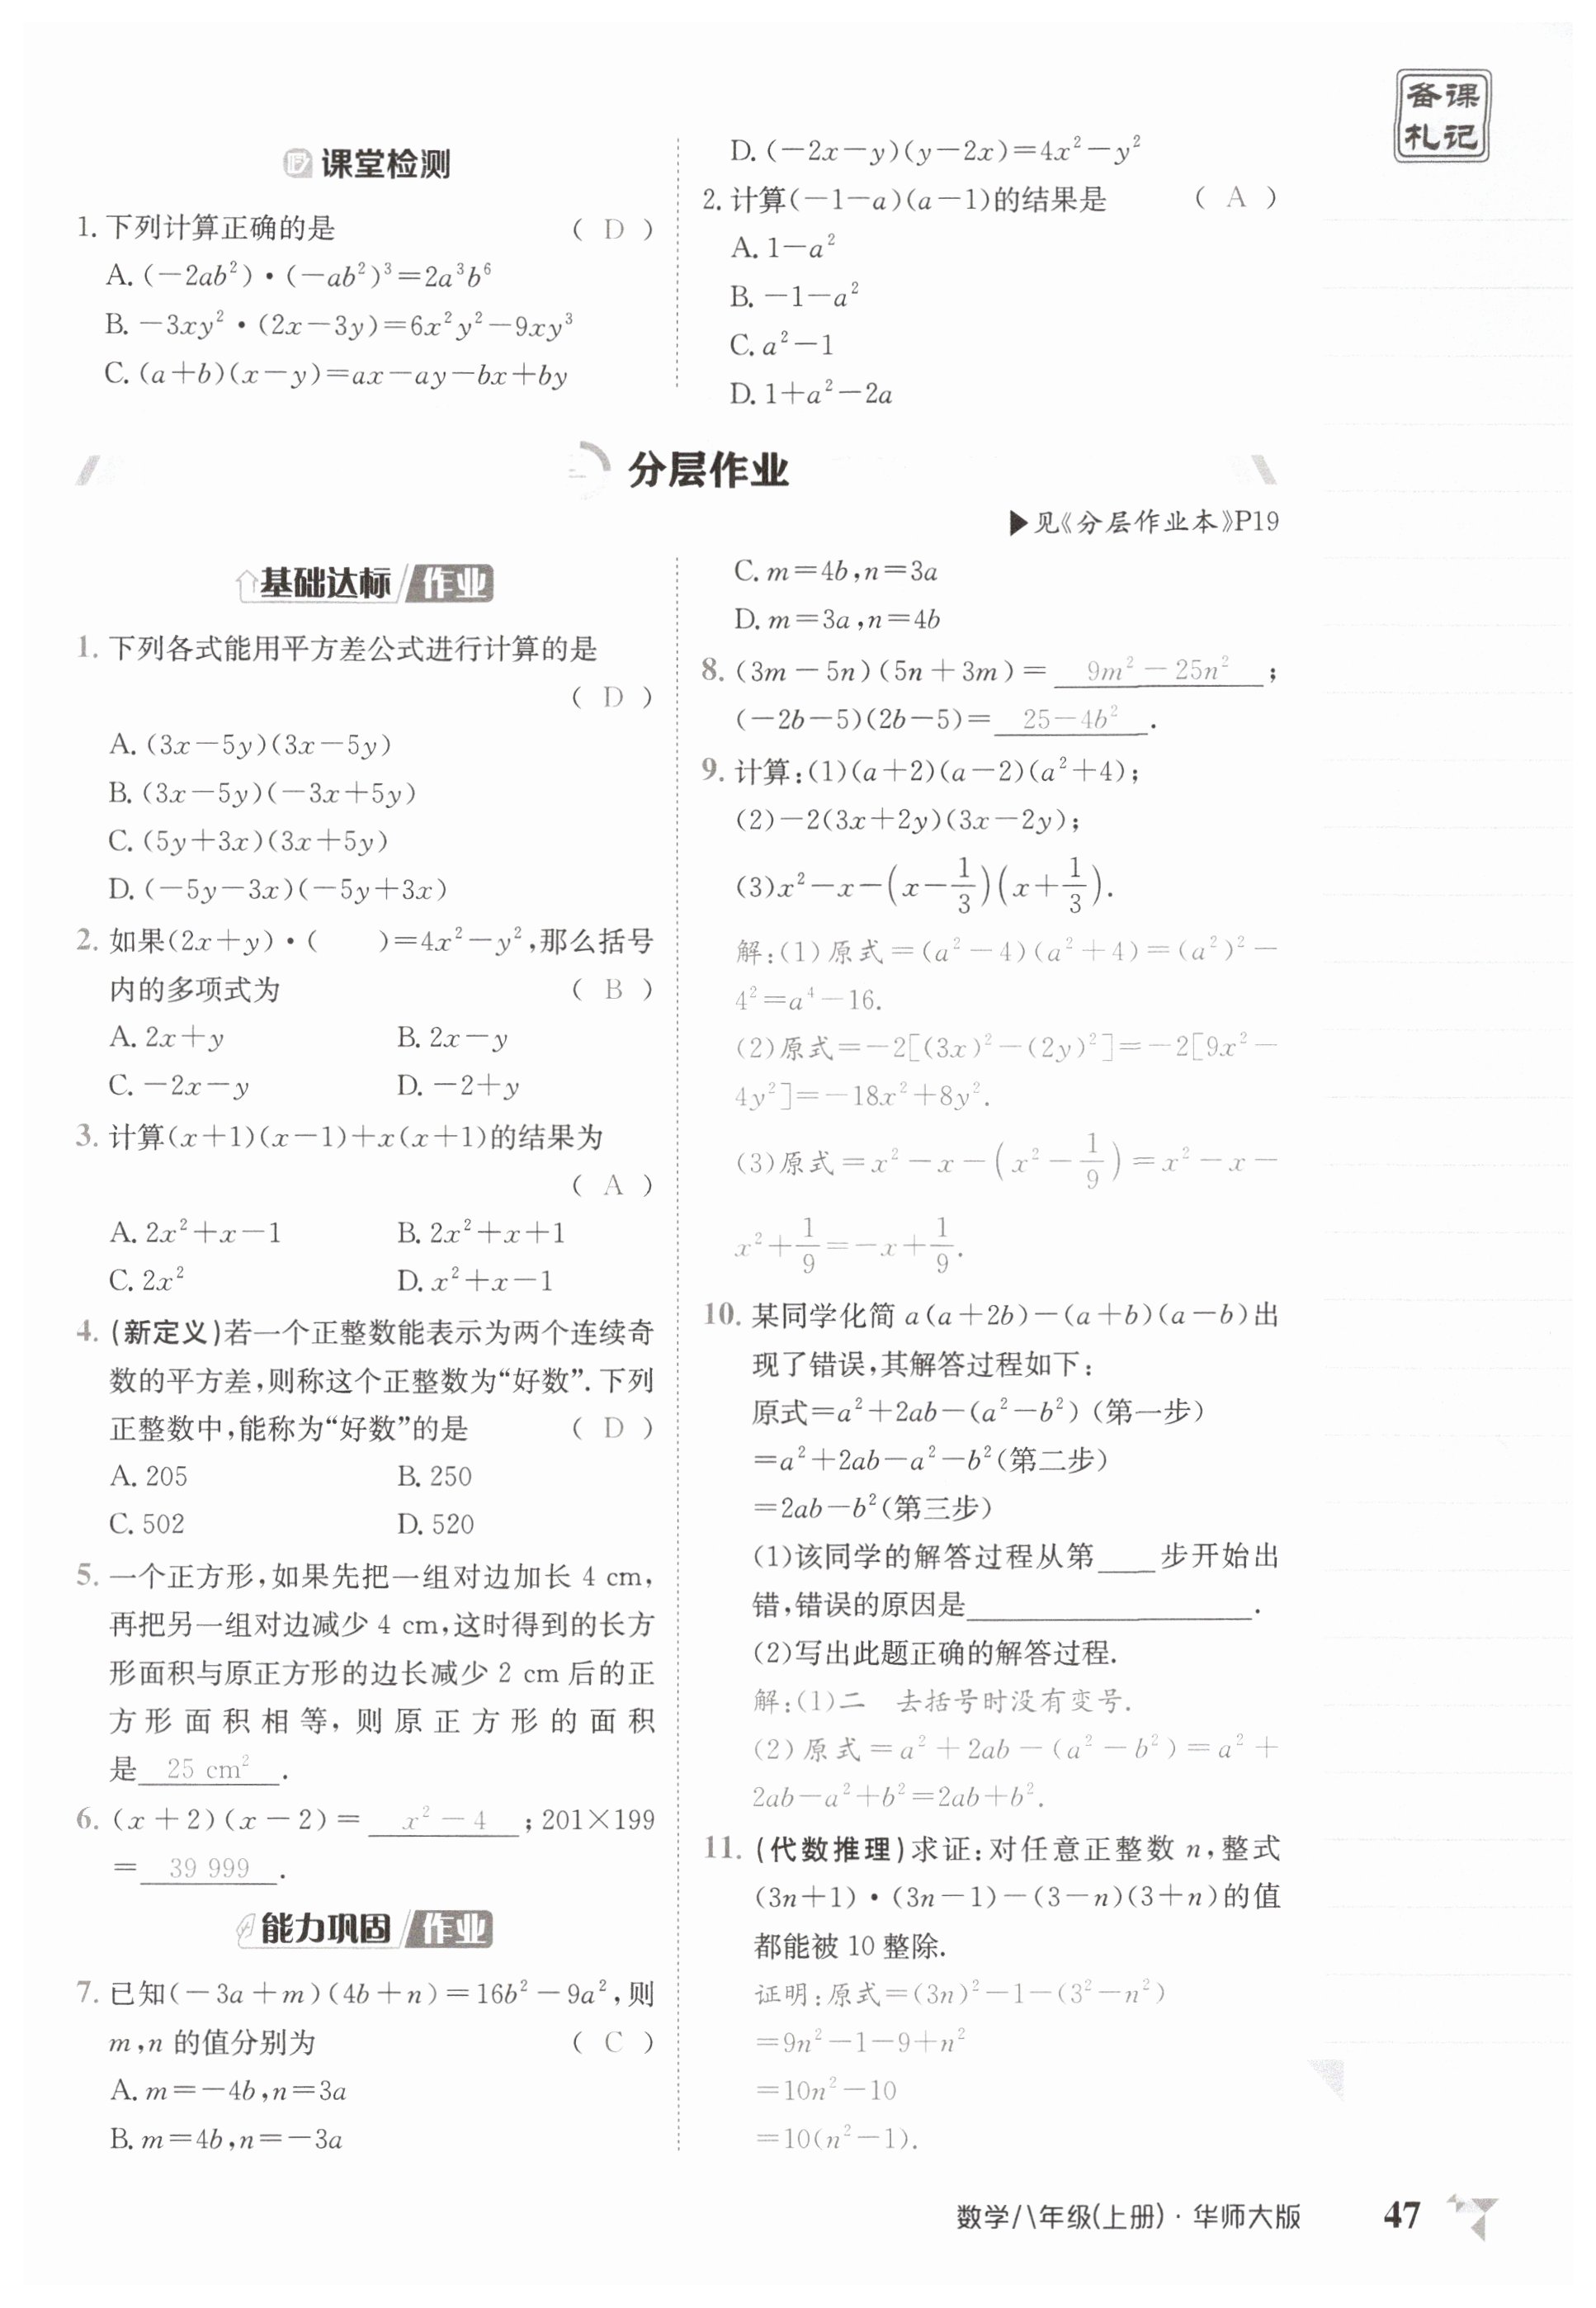 备课
札记
课堂检测
1. 下列计算正确的是 ( D )
A. (-2ab²)·(-ab²)³=2a³b⁶
B. -3xy²·(2x-3y)=6x²y²-9xy³
C. (a+b)(x-y)=ax-ay-bx+by
D. (-2x-y)(y-2x)=4x²-y²
2. 计算(-1-a)(a-1)的结果是 ( A )
A. 1-a²
B. -1-a²
C. a²-1
D. 1+a²-2a
分层作业
▶见《分层作业本》P19
基础达标 作业
1. 下列各式能用平方差公式进行计算的是
( D )
A. (3x-5y)(3x-5y)
B. (3x-5y)(-3x+5y)
C. (5y+3x)(3x+5y)
D. (-5y-3x)(-5y+3x)
2. 如果(2x+y)·( )=4x²-y²,那么括号
内的多项式为 ( B )
A. 2x+y B. 2x-y
C. -2x-y D. -2+y
3. 计算(x+1)(x-1)+x(x+1)的结果为
( A )
A. 2x²+x-1 B. 2x²+x+1
C. 2x² D. x²+x-1
4. (新定义)若一个正整数能表示为两个连续奇
数的平方差,则称这个正整数为“好数”.下列
正整数中,能称为“好数”的是 ( D )
A. 205 B. 250
C. 502 D. 520
5. 一个正方形,如果先把一组对边加长 4 cm,
再把另一组对边减少 4 cm,这时得到的长方
形面积与原正方形的边长减少 2 cm 后的正
方形面积相等,则原正方形的面积
是 25 cm² .
6. (x+2)(x-2)= x²-4 ;201×199
= 39 999 .
能力巩固 作业
7. 已知(-3a+m)(4b+n)=16b²-9a²,则
m,n 的值分别为 ( C )
A. m=-4b,n=3a
B. m=4b,n=-3a
C. m=4b,n=3a
D. m=3a,n=4b
8. (3m-5n)(5n+3m)= 9m²-25n² ;
(-2b-5)(2b-5)= 25-4b² .
9. 计算:(1)(a+2)(a-2)(a²+4);
(2)-2(3x+2y)(3x-2y);
(3)x²-x-(x-1/3)(x+1/3).
解:(1)原式=(a²-4)(a²+4)=(a²)²-
4²=a⁴-16.
(2)原式=-2[(3x)²-(2y)²]=-2[9x²-
4y²]=-18x²+8y².
(3)原式=x²-x-(x²-1/9)=x²-x-
x²+1/9=-x+1/9.
10. 某同学化简 a(a+2b)-(a+b)(a-b)出
现了错误,其解答过程如下:
原式=a²+2ab-(a²-b²)(第一步)
=a²+2ab-a²-b²(第二步)
=2ab-b²(第三步)
(1)该同学的解答过程从第____步开始出
错,错误的原因是____________________.
(2)写出此题正确的解答过程.
解:(1)二 去括号时没有变号.
(2)原式=a²+2ab-(a²-b²)=a²+
2ab-a²+b²=2ab+b².
11. (代数推理)求证:对任意正整数 n,整式
(3n+1)·(3n-1)-(3-n)(3+n)的值
都能被 10 整除.
证明:原式=(3n)²-1-(3²-n²)
=9n²-1-9+n²
=10n²-10
=10(n²-1).
数学/八年级(上册)·华师大版 47